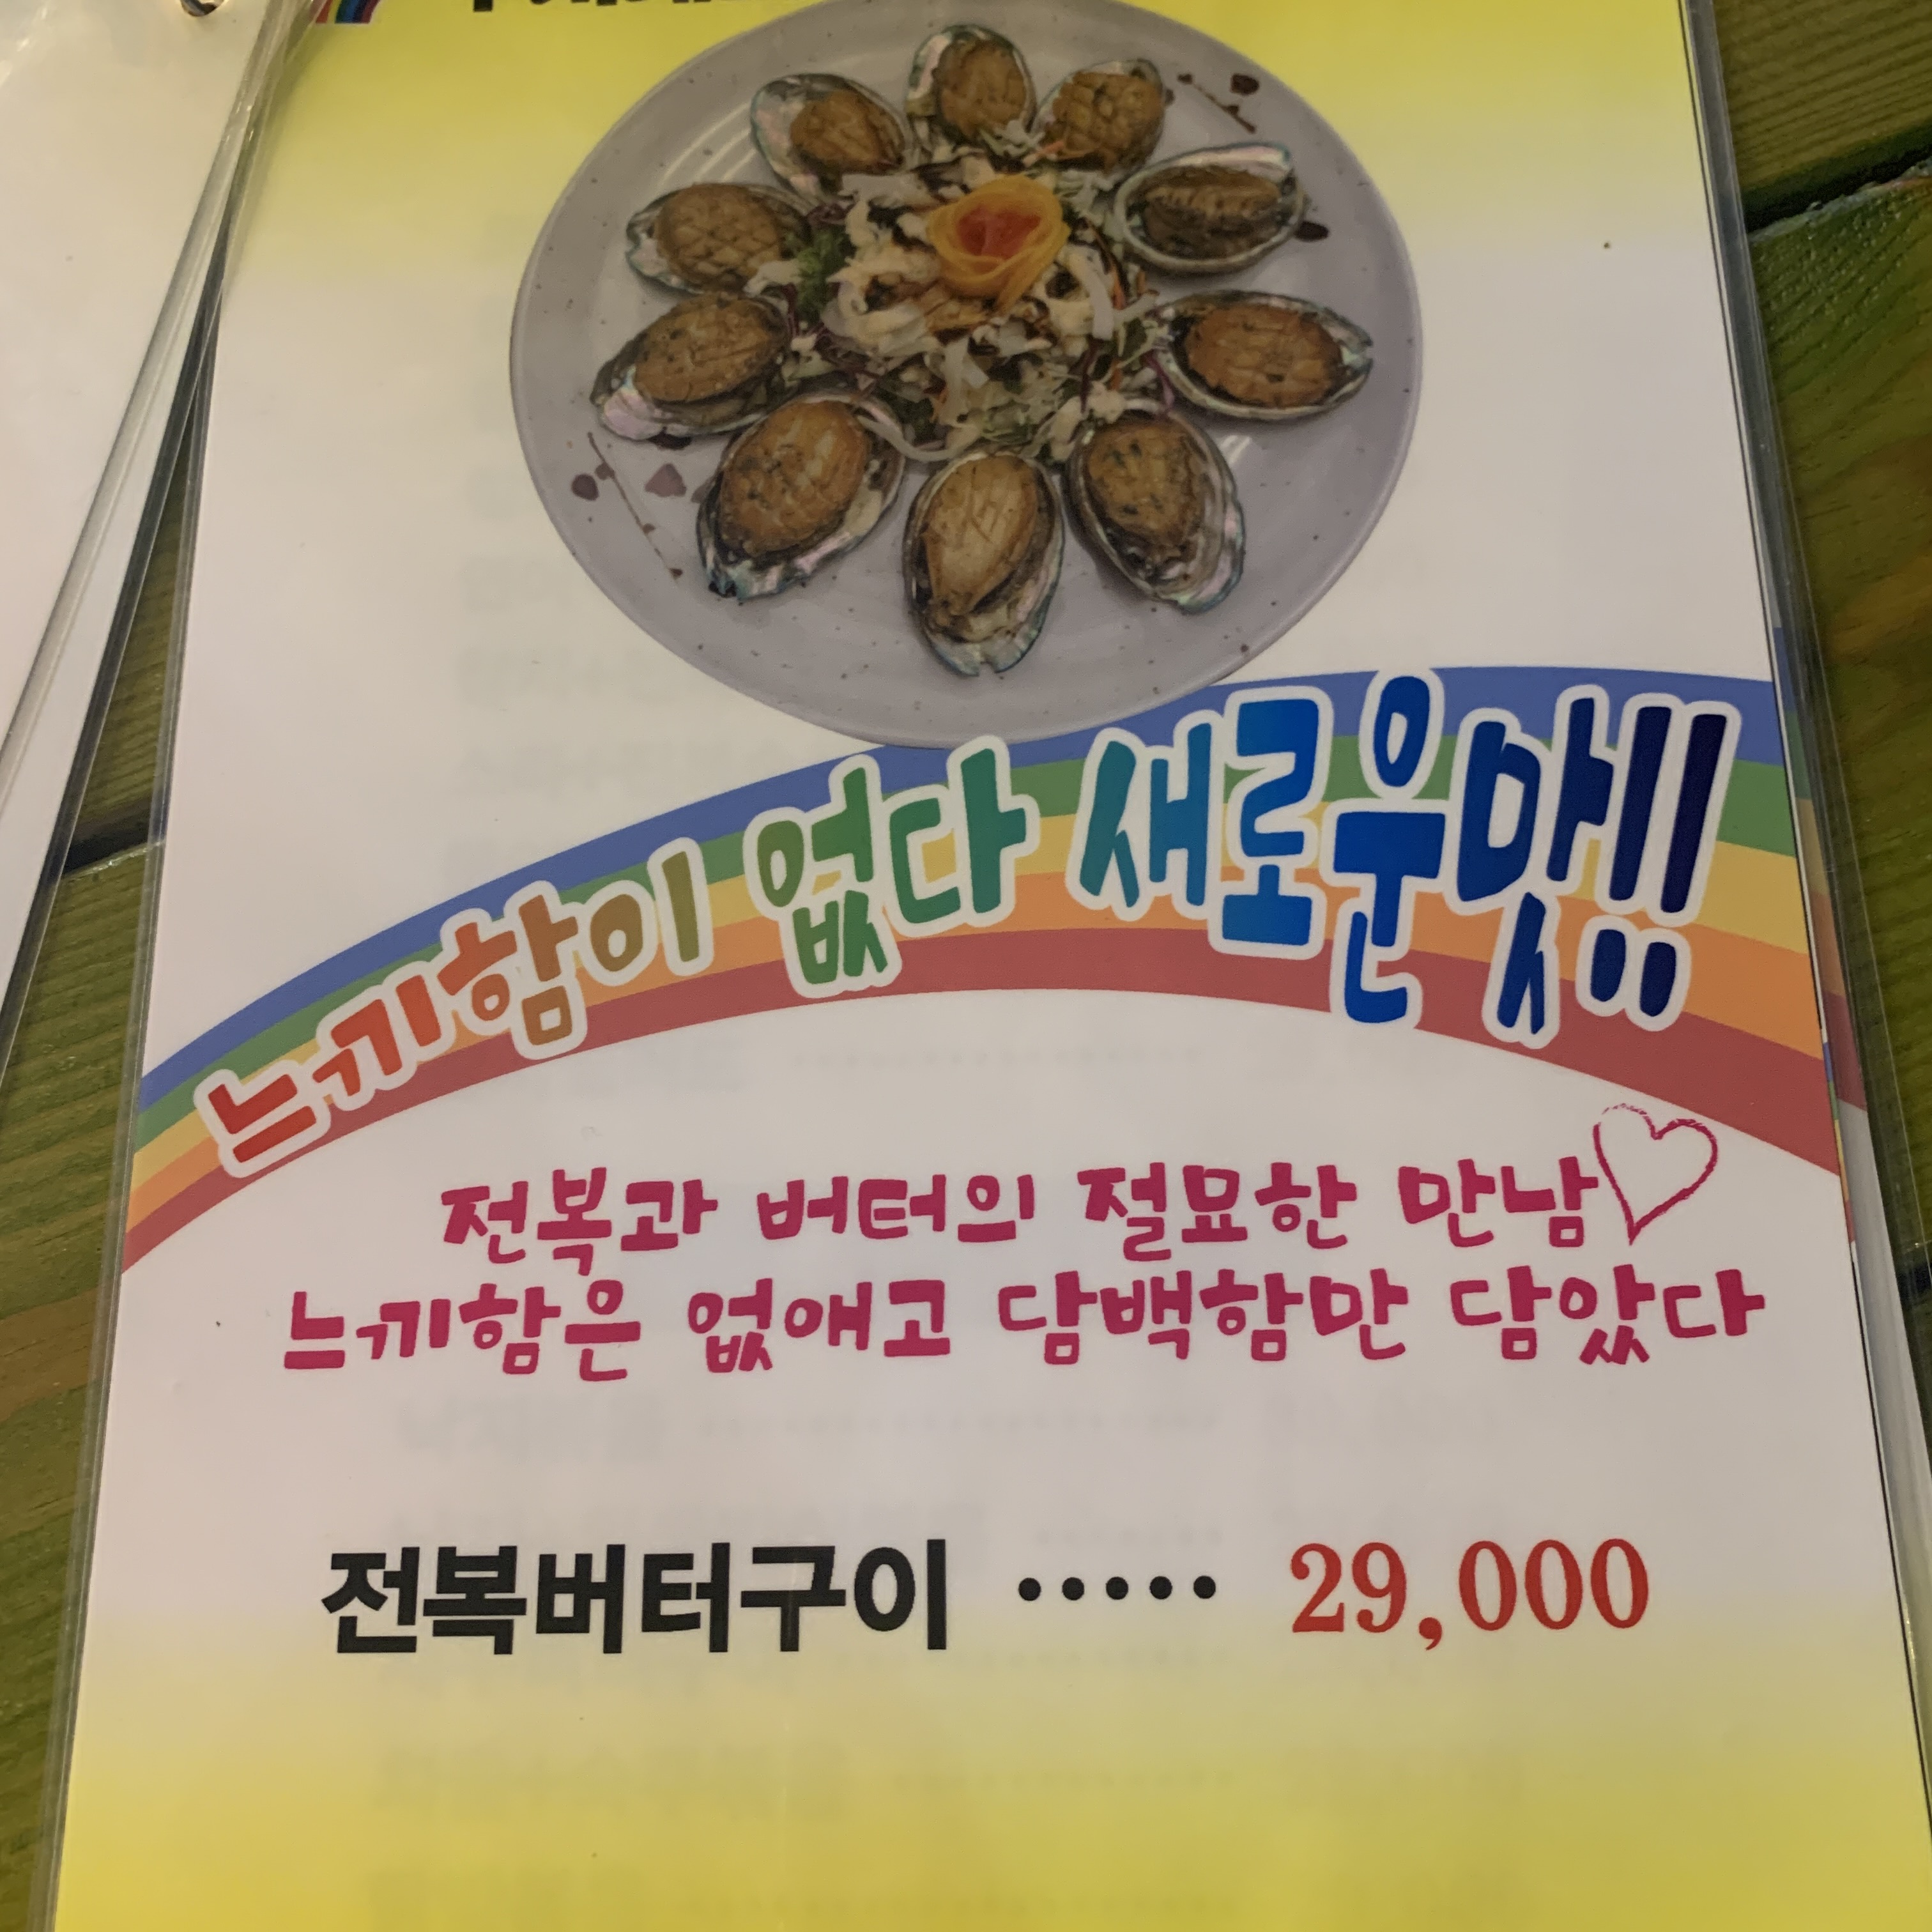 느끼함이 없다 새로운맛!!
전복과 버터의 절묘한 만남♡
느끼함은 없애고 담백함만 담았다
전복버터구이 ····· 29,000